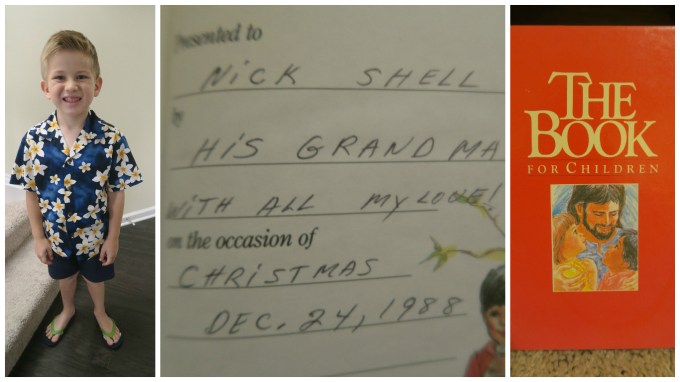 Presented to
NiCK SHELL
by
HiS GRANDMA
WiTH ALL my LOVE!
on the occasion of
CHRiSTMAS
DEC. 24, 1988
THE
BOOK
FOR CHILDREN